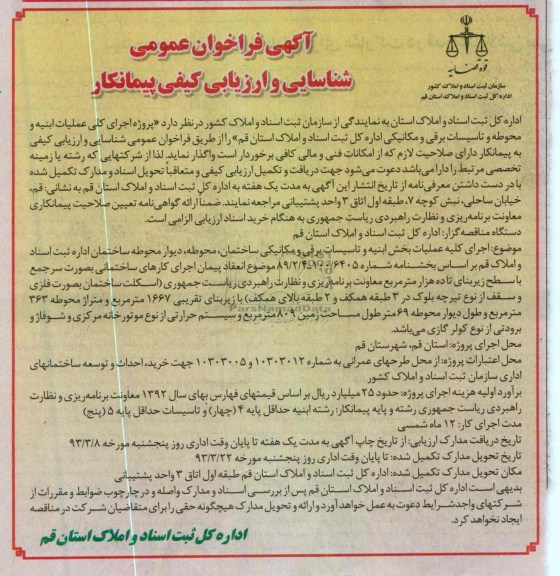 آگهی فراخوان عمومی
شناسایی و ارزیابی کیفی پیمانکار
قوه قضاییه
سازمان ثبت اسناد و املاک کشور
اداره کل ثبت اسناد و املاک استان قم
اداره کل ثبت اسناد و املاک استان به نمایندگی از سازمان ثبت اسناد و املاک کشور در نظر دارد «پروژه اجرای کلی عملیات ابنیه و
محوطه و تاسیسات برقی و مکانیکی اداره کل ثبت اسناد و املاک استان قم» را از طریق فراخوان عمومی شناسایی و ارزیابی کیفی
به پیمانکار دارای صلاحیت لازم که از امکانات فنی و مالی کافی برخوردار است واگذار نماید. لذا از شرکتهایی که رشته یا زمینه
تخصصی مرتبط را دارا می‌باشد دعوت می‌شود جهت دریافت و تکمیل ارزیابی کیفی و متعاقبا تحویل اسناد و مدارک تکمیل شده
با در دست داشتن معرفی‌نامه از تاریخ انتشار این آگهی به مدت یک هفته به اداره کل ثبت اسناد و املاک استان قم به نشانی: قم،
خیابان ساحلی، نبش کوچه ۷، طبقه اول اتاق ۳ واحد پشتیبانی مراجعه نمایند. ضمنا ارائه گواهی‌نامه تعیین صلاحیت پیمانکاری
معاونت برنامه‌ریزی و نظارت راهبردی ریاست جمهوری به هنگام خرید اسناد ارزیابی الزامی است.
دستگاه مناقصه گزار: اداره کل ثبت اسناد و املاک استان قم
موضوع: اجرای کلیه عملیات بخش ابنیه و تاسیسات برقی و مکانیکی ساختمان، محوطه، دیوار محوطه ساختمان اداره ثبت اسناد
و املاک قم بر اساس بخشنامه شماره ۸۹/۲/۴ موضوع انعقاد پیمان اجرای کارهای ساختمانی بصورت سرجمع
با سطح زیربنای تا ده هزار مترمربع معاونت برنامه‌ریزی و نظارت راهبردی ریاست جمهوری (اسکلت ساختمان بصورت فلزی
و سقف از نوع تیرچه بلوک در ۳ طبقه همکف و ۲ طبقه بالای همکف) با زیربنای تقریبی ۱۶۶۷ مترمربع و متراژ محوطه ۳۶۳
مترمربع و طول دیوار محوطه ۶۹ متر طول مساحت زمین ۸۰۹ مترمربع و سیستم حرارتی از نوع موتورخانه مرکزی و شوفاژ و
برودتی از نوع کولر گازی می‌باشد.
محل اجرای پروژه: استان قم، شهرستان قم
محل اعتبارات پروژه: از محل طرحهای عمرانی به شماره ۱۰۳۰۳۰۱۲ و ۱۰۳۰۳۰۰۵ جهت خرید، احداث و توسعه ساختمانهای
اداری سازمان ثبت اسناد و املاک کشور
برآورد اولیه هزینه اجرای پروژه: حدود ۲۵ میلیارد ریال بر اساس قیمتهای فهارس بهای سال ۱۳۹۲ معاونت برنامه‌ریزی و نظارت
راهبردی ریاست جمهوری رشته و پایه پیمانکار: رشته ابنیه حداقل پایه ۴ (چهار) و تاسیسات حداقل پایه ۵ (پنج)
مدت اجرای کار: ۱۲ ماه شمسی
تاریخ دریافت مدارک ارزیابی: از تاریخ چاپ آگهی به مدت یک هفته تا پایان وقت اداری روز پنجشنبه مورخه ۹۳/۳/۸
تاریخ تحویل مدارک تکمیل شده: تا پایان وقت اداری روز پنجشنبه مورخه ۹۳/۳/۲۲
مکان تحویل مدارک تکمیل شده: اداره کل ثبت اسناد و املاک استان قم طبقه اول اتاق ۳ واحد پشتیبانی
بدیهی است اداره کل ثبت اسناد و املاک استان قم پس از بررسی اسناد و مدارک واصله و در چارچوب ضوابط و مقررات از
شرکتهای واجد شرایط دعوت به عمل خواهد آورد و ارائه و تحویل مدارک هیچگونه حقی را برای متقاضیان شرکت در مناقصه
ایجاد نخواهد کرد.
اداره کل ثبت اسناد و املاک استان قم
ParsNamadData